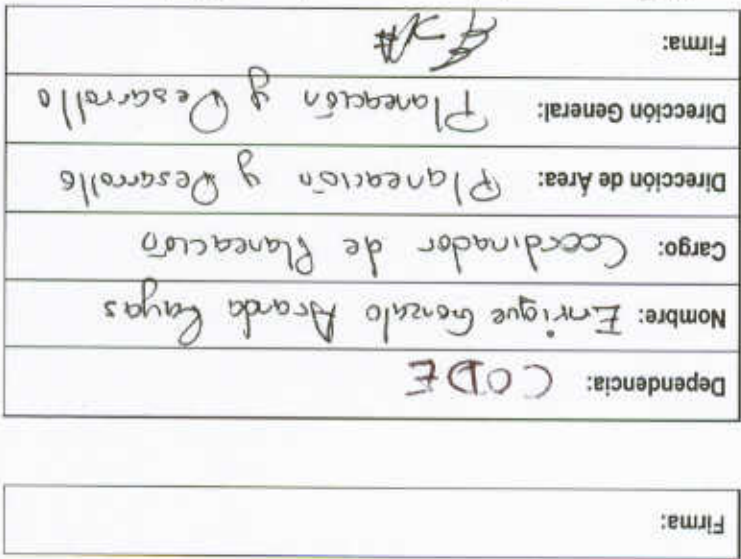 Firma:
Dependencia: CODE
Nombre: Enrique Gonzalo Aranda
Cargo: Coordinador de Planeación
Dirección de Área: Planeación y Desarrollo
Dirección General: Planeación y Desarrollo
Firma: